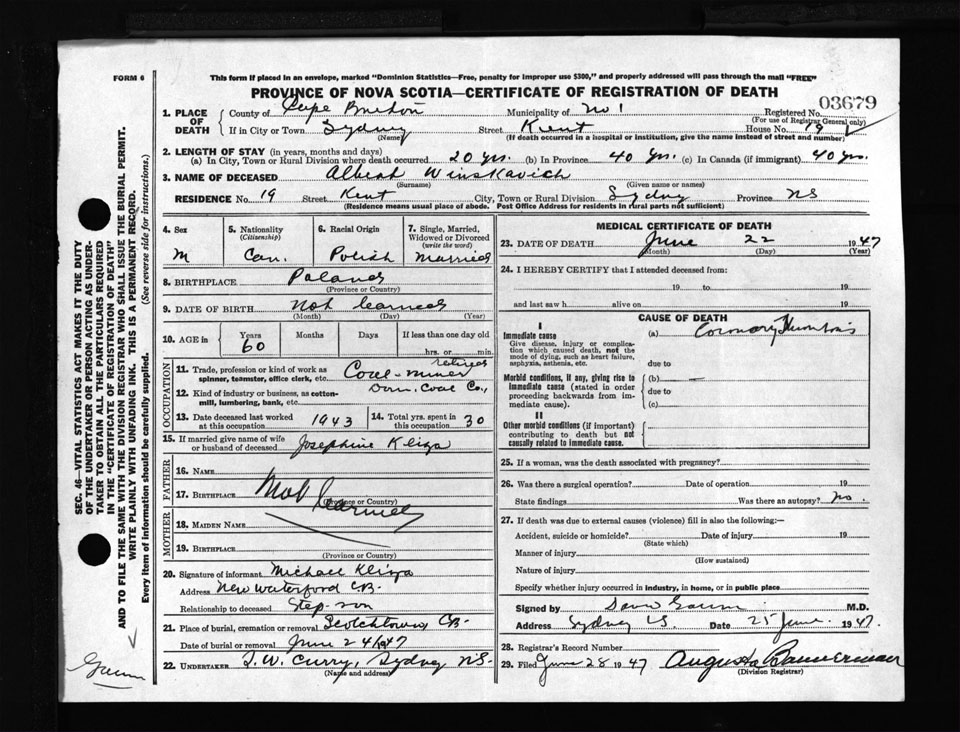 FORM 6
This form if placed in an envelope, marked "Dominion Statistics—Free, penalty for improper use $300," and properly addressed will pass through the mail "FREE"
PROVINCE OF NOVA SCOTIA—CERTIFICATE OF REGISTRATION OF DEATH
03679
1. PLACE OF DEATH County of Cape Breton Municipality of No 1 Registered No. (For use of Registrar General only)
If in City or Town Sydney (Name) Street Kent House No. 19
(If death occurred in a hospital or institution, give the name instead of street and number)
2. LENGTH OF STAY (in years, months and days)
(a) In City, Town or Rural Division where death occurred 20 yrs. (b) In Province 40 Yrs. (c) In Canada (if immigrant) 40 yrs.
3. NAME OF DECEASED Albeah Winskavich
(Surname) (Given name or names)
RESIDENCE No. 19 Street Kent City, Town or Rural Division Sydney Province NS
(Residence means usual place of abode. Post Office Address for residents in rural parts not sufficient)
4. Sex M
5. Nationality (Citizenship) Can.
6. Racial Origin Polish
7. Single, Married, Widowed or Divorced (write the word) Married
8. BIRTHPLACE Poland
(Province or Country)
9. DATE OF BIRTH Not learned
(Month) (Day) (Year)
10. AGE in Years 60 Months Days If less than one day old hrs. or min.
OCCUPATION
11. Trade, profession or kind of work as spinner, teamster, office clerk, etc. Coal-miner retired
12. Kind of industry or business, as cotton-mill, lumbering, bank, etc. Dom. Coal Co.,
13. Date deceased last worked at this occupation 1943 14. Total yrs. spent in this occupation 30
15. If married give name of wife or husband of deceased Josephine Kliza
FATHER
16. NAME
17. BIRTHPLACE Not learned
(Province or Country)
MOTHER
18. MAIDEN NAME
19. BIRTHPLACE
(Province or Country)
20. Signature of informant Michael Kliza
Address New Waterford C.B.
Relationship to deceased Step-son
21. Place of burial, cremation or removal Scotchtown, C.B.
Date of burial or removal June 24 1947
22. UNDERTAKER T.W. Curry, Sydney N.S.
(Name and address)
MEDICAL CERTIFICATE OF DEATH
23. DATE OF DEATH June 22 1947
(Month) (Day) (Year)
24. I HEREBY CERTIFY that I attended deceased from:
19 to 19
and last saw h alive on 19
CAUSE OF DEATH
I
Immediate cause (a) Coronary Thrombosis
Give disease, injury or complication which caused death, not the mode of dying, such as heart failure, asphyxia, asthenia, etc.
due to
Morbid conditions, if any, giving rise to immediate cause (stated in order proceeding backwards from immediate cause).
(b)
due to
(c)
II
Other morbid conditions (if important) contributing to death but not causally related to immediate cause.
25. If a woman, was the death associated with pregnancy?
26. Was there a surgical operation? Date of operation 19
State findings Was there an autopsy? No.
27. If death was due to external causes (violence) fill in also the following:—
Accident, suicide or homicide? Date of injury 19
(State which)
Manner of injury
(How sustained)
Nature of injury
Specify whether injury occurred in industry, in home, or in public place
Signed by M.D.
Address Sydney NS Date 25 June 1947.
28. Registrar's Record Number
29. Filed June 28 1947 Augusta Bannerman
(Division Registrar)
SEC. 46—VITAL STATISTICS ACT MAKES IT THE DUTY
OF THE UNDERTAKER OR PERSON ACTING AS UNDER-
TAKER TO OBTAIN ALL THE PARTICULARS REQUIRED
IN THE "CERTIFICATE OF REGISTRATION OF DEATH"
AND TO FILE THE SAME WITH THE DIVISION REGISTRAR WHO SHALL ISSUE THE BURIAL PERMIT.
WRITE PLAINLY WITH UNFADING INK. THIS IS A PERMANENT RECORD.
Every item of information should be carefully supplied. (See reverse side for instructions.)